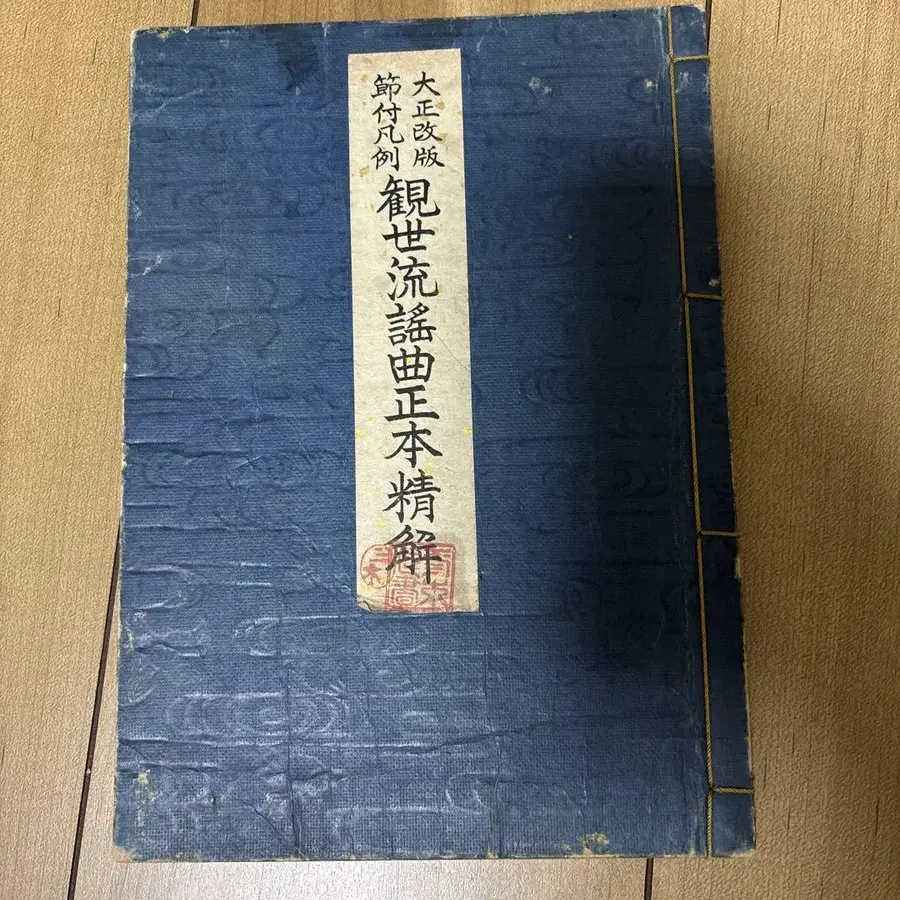 大正改版
節付凡例
観世流謡曲正本精解
三木